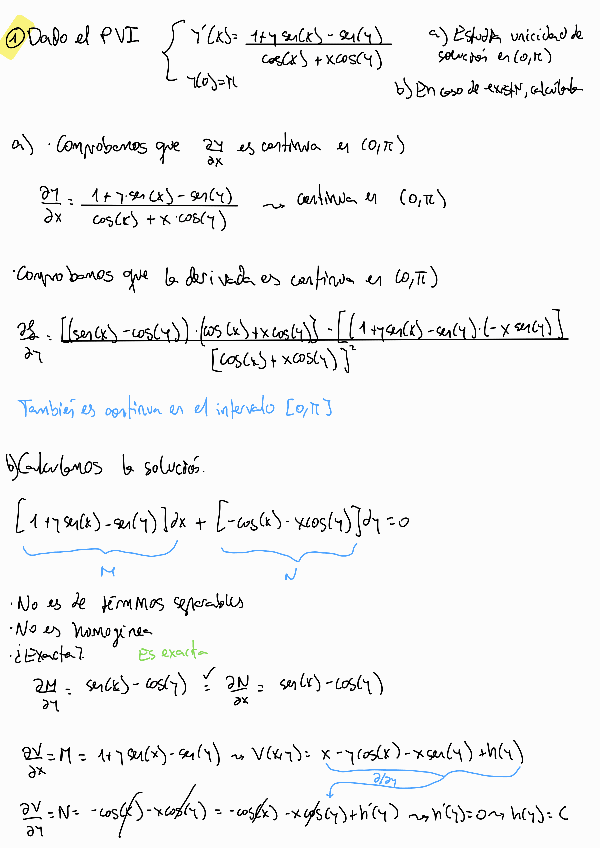 ① Dado el PVI { y'(x) = (1+y sen(x) - sen(y)) / (cos(x) + x cos(y)) a) Estudia unicidad de
solución en (0,π)
y(0)=π
b) En caso de existir, calcularla
a) · Comprobamos que ∂y/∂x es continua en (0,π)
∂y/∂x = (1+y·sen(x) - sen(y)) / (cos(x) + x·cos(y)) ⤳ continua en (0,π)
· Comprobamos que la derivada es continua en (0,π)
∂f/∂y = [(sen(x) - cos(y))·(cos(x)+xcos(y))] - [(1+ysen(x) - sen(y)·(-x sen(y)] / [cos(x) + xcos(y)]²
También es continua en el intervalo [0,π]
b) Calculamos la solución.
[1+y sen(x) - sen(y)]dx + [-cos(x) - xcos(y)]dy = 0
M N
· No es de términos separables
· No es homogénea
· ¿Exacta? Es exacta
∂M/∂y = sen(x) - cos(y) =✓ ∂N/∂x = sen(x) - cos(y)
∂V/∂x = M = 1+y sen(x) - sen(y) ⤳ V(x,y) = x - ycos(x) - x sen(y) + h(y)
∂/∂y
∂V/∂y = N = -cos(x) - xcos(y) = -cos(x) - xcos(y) + h'(y) ⤳ h'(y)=0 ⤳ h(y) = C